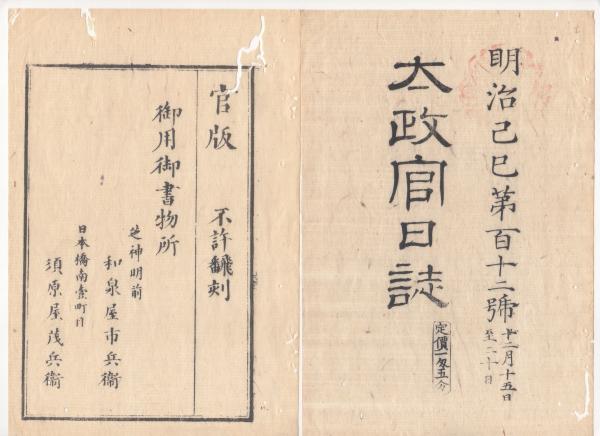 明治己巳第百十二號
十二月十五日
至二十日
太政官日誌
定價一匁五分
官版 不許飜刻
御用御書物所
芝神明前
和泉屋市兵衞
日本橋南壹町目
須原屋茂兵衞